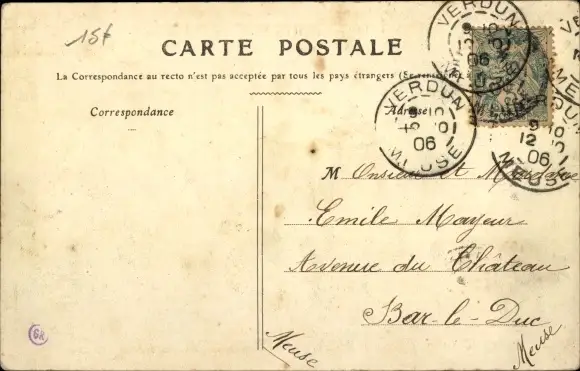 15f
CARTE POSTALE
La Correspondance au recto n'est pas acceptée par tous les pays étrangers (Se renseigner à
Correspondance
Adresse
VERDUN
MEUSE
06
VERDUN
MEUSE
06
9
12
06
MEUSE
Monsieur et Madame
Emile Mayeur
Avenue du Château
Bar-le-Duc
Meuse
Meuse